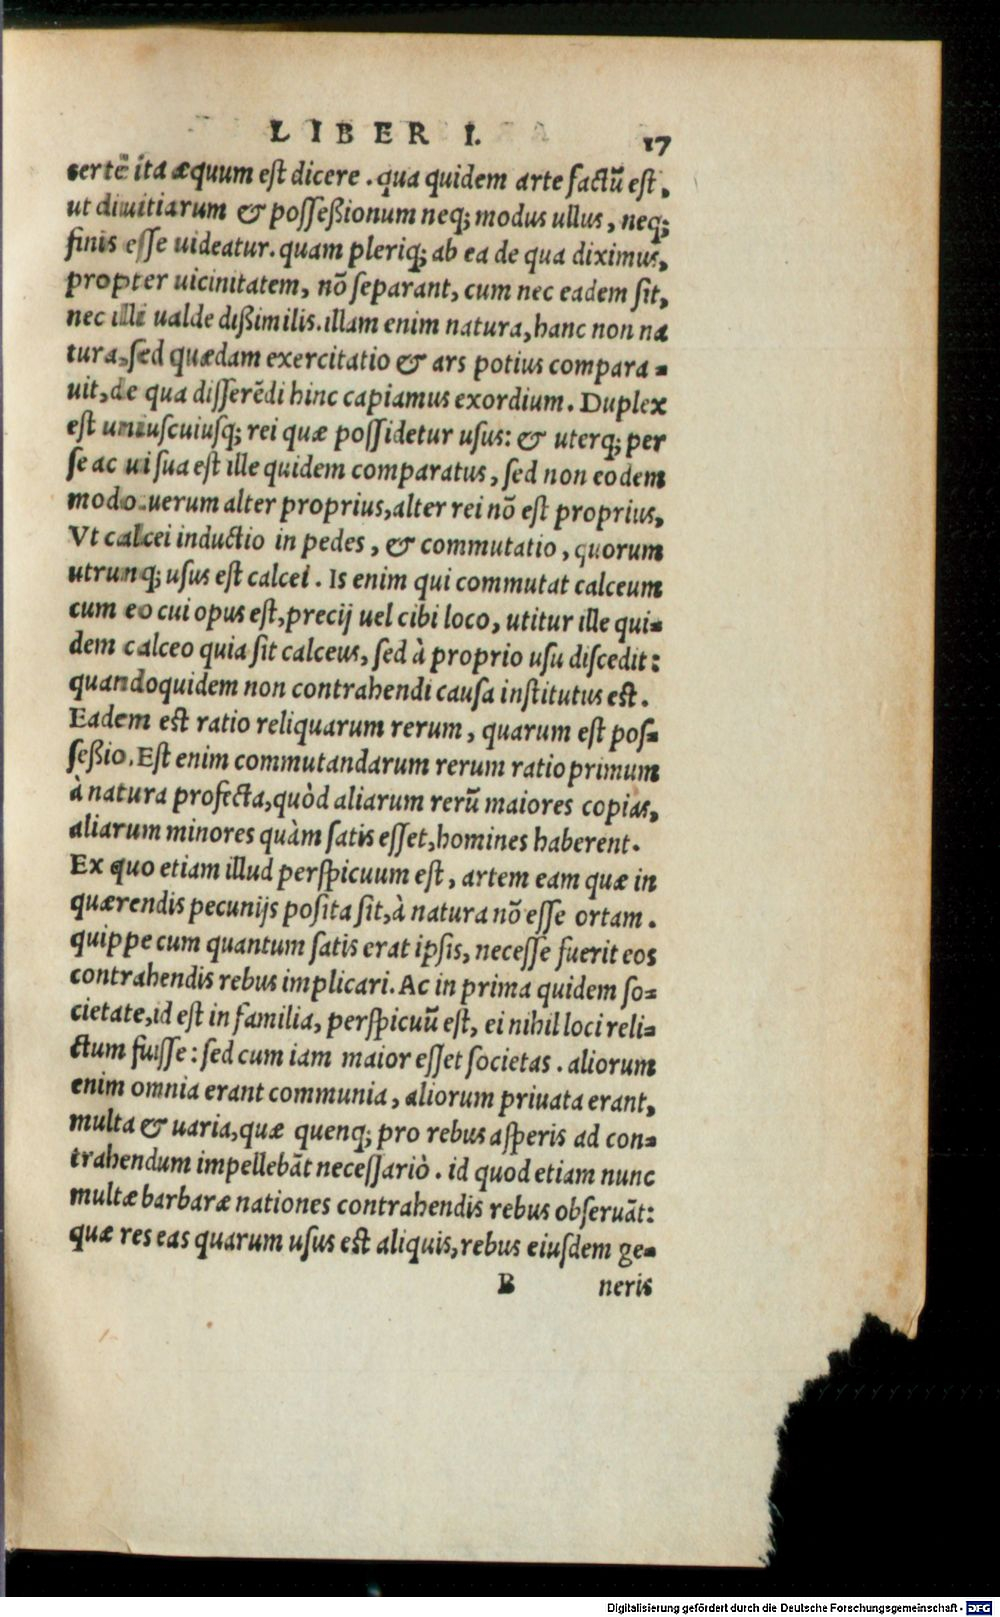 LIBER I. 17
certē ita æquum est dicere. qua quidem arte factū est,
ut diuitiarum & possessionum neq; modus ullus, neq;
finis esse uideatur. quam pleriq; ab ea de qua diximus,
propter uicinitatem, nō separant, cum nec eadem sit,
nec illi ualde dißimilis. illam enim natura, hanc non na
tura, sed quædam exercitatio & ars potius compara-
uit, de qua disserēdi hinc capiamus exordium. Duplex
est uniuscuiusq; rei quæ possidetur usus: & uterq; per
se ac ui sua est ille quidem comparatus, sed non eodem
modo. uerum alter proprius, alter rei nō est proprius,
Vt calcei inductio in pedes, & commutatio, quorum
utrunq; usus est calcei. Is enim qui commutat calceum
cum eo cui opus est, precij uel cibi loco, utitur ille qui-
dem calceo quia sit calceus, sed à proprio usu discedit:
quandoquidem non contrahendi causa institutus est.
Eadem est ratio reliquarum rerum, quarum est pos-
seßio. Est enim commutandarum rerum ratio primum
à natura profecta, quòd aliarum rerū maiores copias,
aliarum minores quàm satis esset, homines haberent.
Ex quo etiam illud perspicuum est, artem eam quæ in
quærendis pecunijs posita sit, à natura nō esse ortam.
quippe cum quantum satis erat ipsis, necesse fuerit eos
contrahendis rebus implicari. Ac in prima quidem so-
cietate, id est in familia, perspicuū est, ei nihil loci reli-
ctum fuisse: sed cum iam maior esset societas. aliorum
enim omnia erant communia, aliorum priuata erant,
multa & uaria, quæ quenq; pro rebus asperis ad con-
trahendum impellebāt necessariò. id quod etiam nunc
multæ barbaræ nationes contrahendis rebus obseruāt:
quæ res eas quarum usus est aliquis, rebus eiusdem ge-
B neris
Digitalisierung gefördert durch die Deutsche Forschungsgemeinschaft - DFG